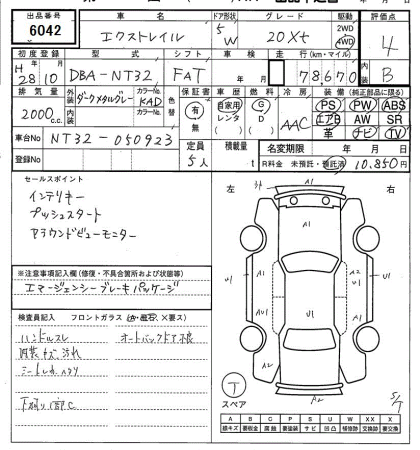 出品番号 車名 ドア形状 グレード 駆動 評価点
6042 エクストレイル 5 W 20Xt 2WD 4WD 4
初度登録 型式 シフト 車検 走行(km・マイル) 内装
H28 10 DBA-NT32 FAT 年 月 78,670 B
排気量 外装 ダークメタルグレー カラーNo. KAD 色替 保証書 車歴 燃料 冷房 装備(純正部品に限る)
2000 c.c. 内装 カラーNo. 有 無 自家用 レンタ G D AAC PS PW ABS
エアB AW SR
革 ナビ TV
車台No NT32-050923 定員 積載量 名変期限 年 月 日
登録No 5人 t R料金 未預託・預託済 10,850円
セールスポイント
インテリキー
プッシュスタート
アラウンドビューモニター
※注意事項記入欄(修復・不具合箇所および状態等)
エマージェンシーブレーキパッケージ
検査員記入 フロントガラス
ハンドルスレ オートバックドア
内装キズ汚れ
左 右
A1
A1
U1 A1 A2 U1
AU1 U1 A1
A2 A2
T
スペア
5/T
A B C P S U W X XX X
線キズ 要板金 腐蝕 要塗装 サビ 凹凸 補修跡 交換跡 要交換